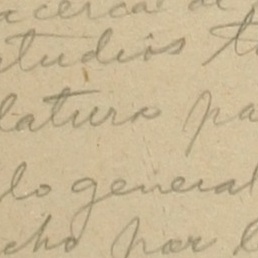 acerca de
studios t
latura pa
lo general
cho por l